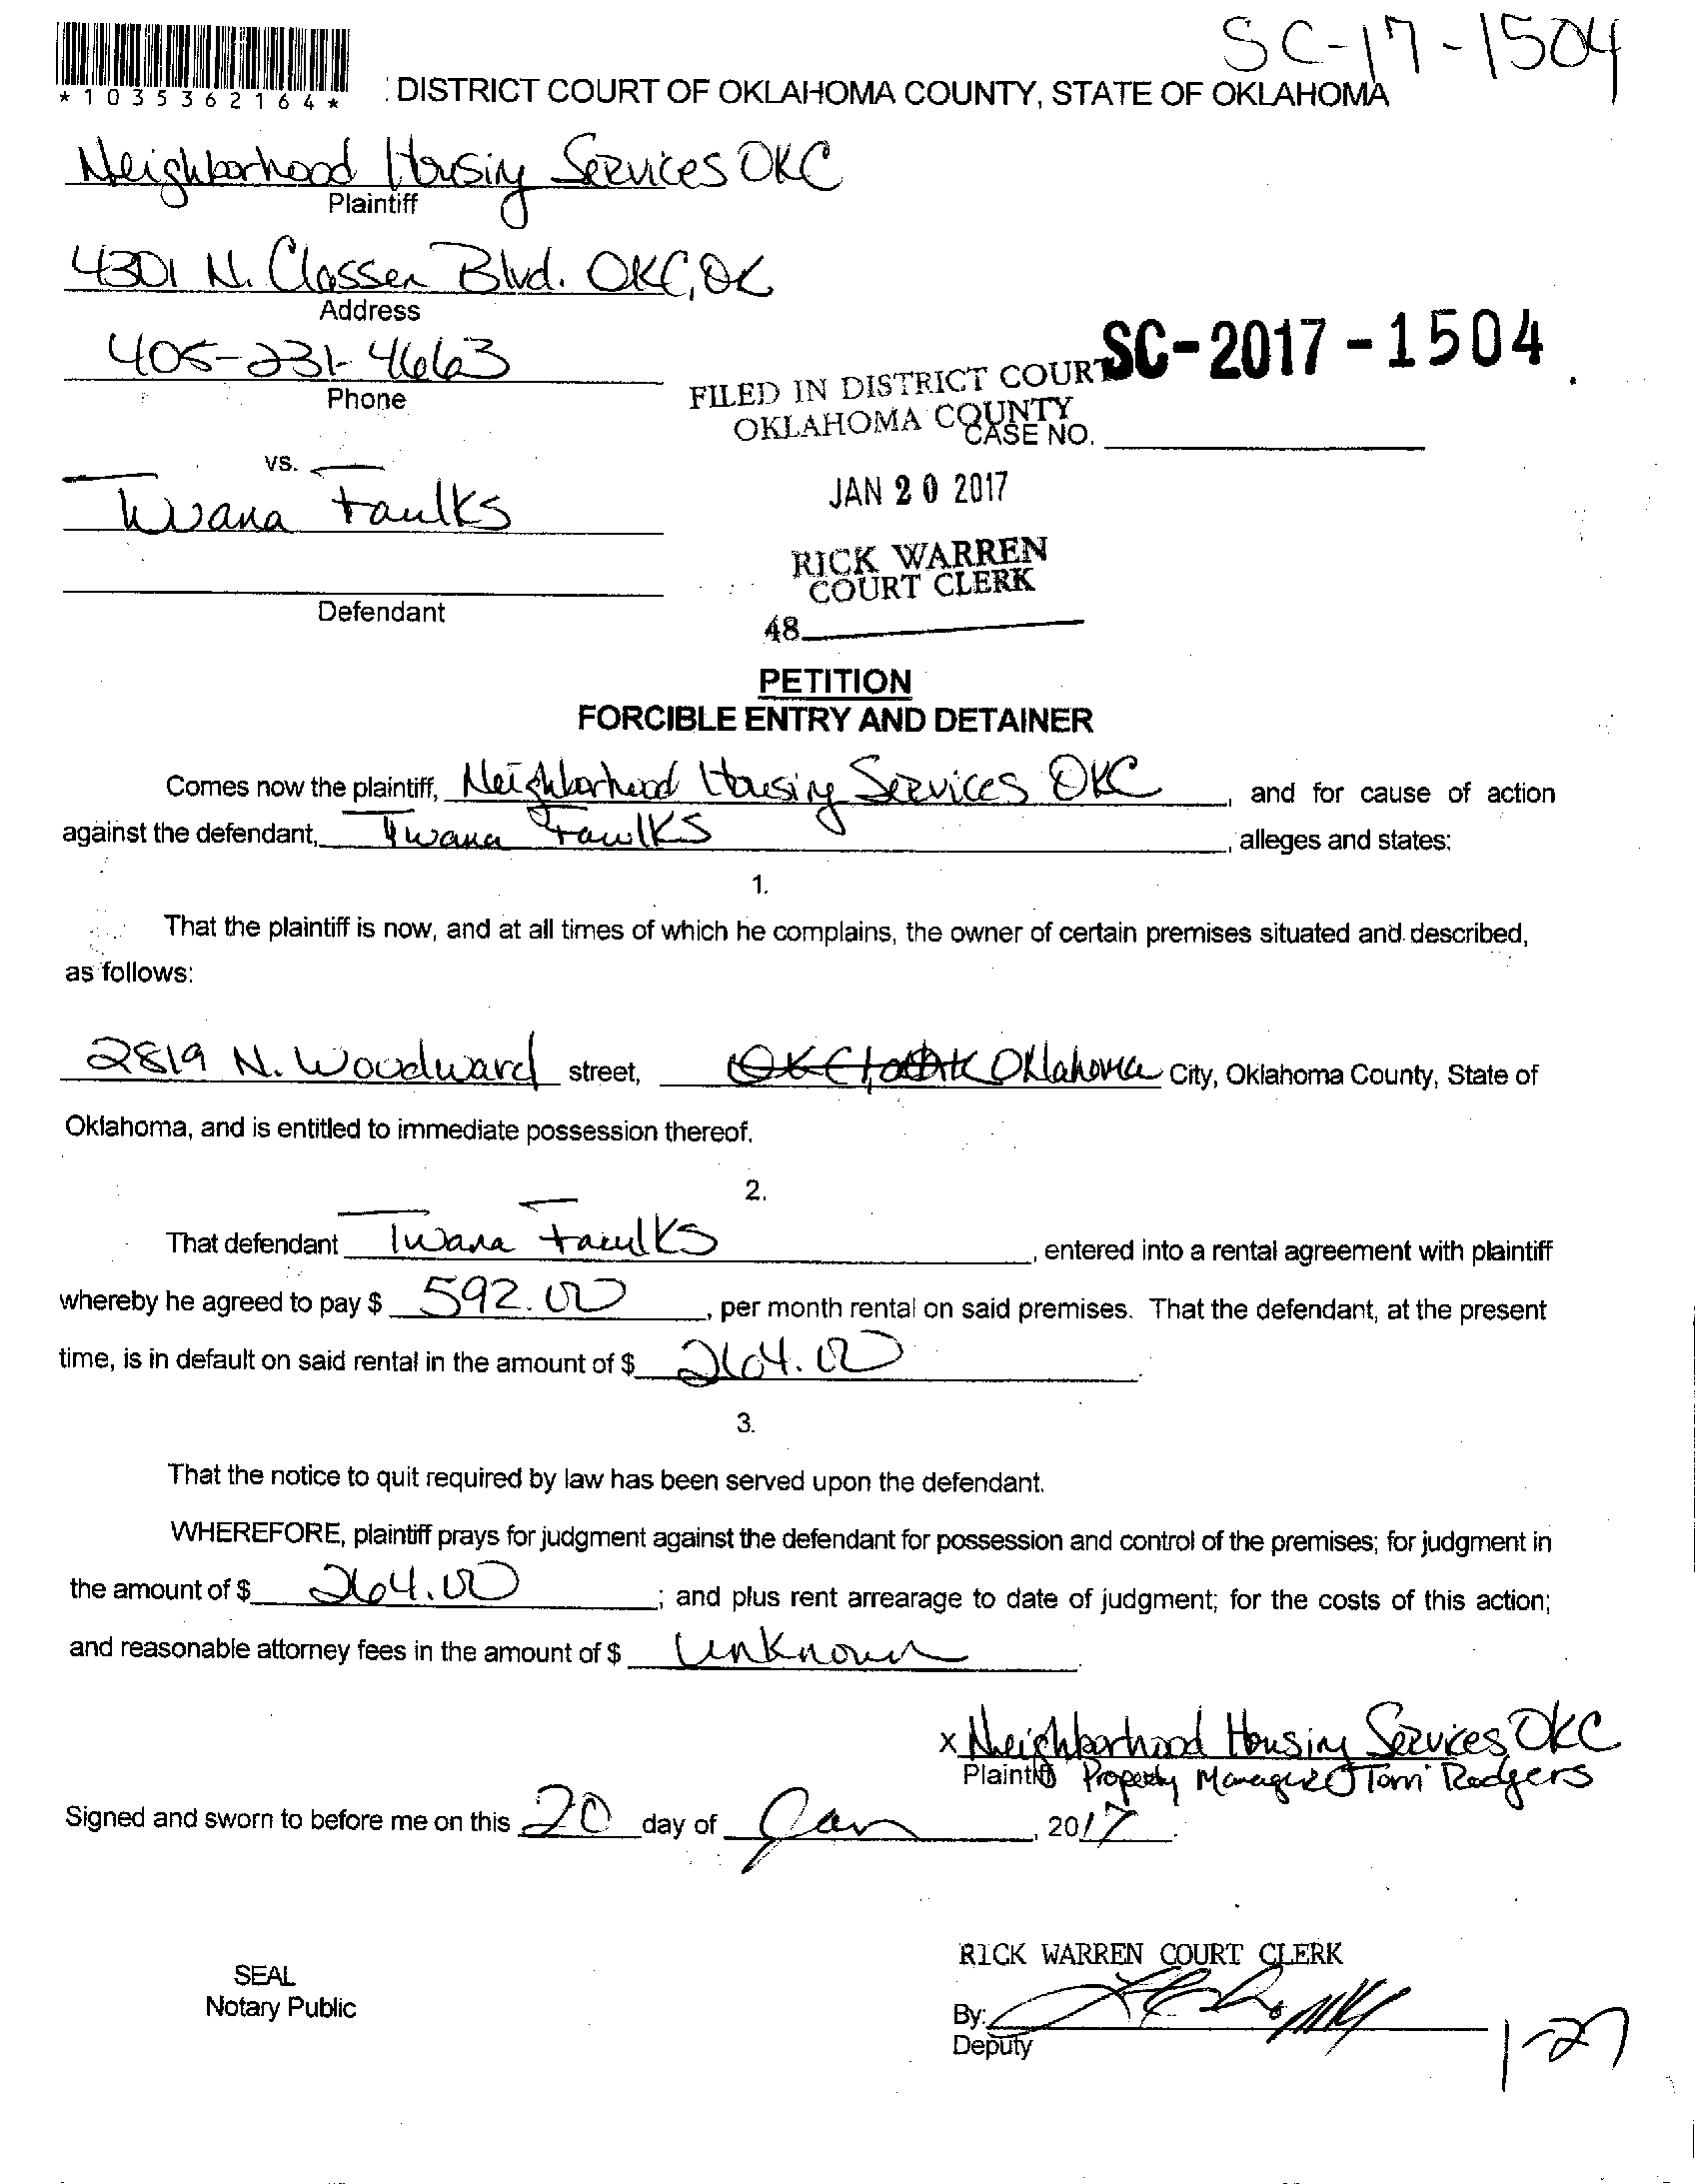 SC-17-1504
*1035362164*
DISTRICT COURT OF OKLAHOMA COUNTY, STATE OF OKLAHOMA
Neighborhood Housing Services OKC
Plaintiff
4301 N. Classen Blvd. OKC, OK
Address
405-231-4663
Phone
SC-2017-1504
FILED IN DISTRICT COURT
OKLAHOMA COUNTY
CASE NO.
vs.
JAN 20 2017
Twana Faulks
RICK WARREN
COURT CLERK
Defendant
48
PETITION
FORCIBLE ENTRY AND DETAINER
Comes now the plaintiff, Neighborhood Housing Services OKC, and for cause of action
against the defendant, Twana Faulks, alleges and states:
1.
That the plaintiff is now, and at all times of which he complains, the owner of certain premises situated and described,
as follows:
2819 N. Woodward street, Oklahoma City, Oklahoma County, State of
Oklahoma, and is entitled to immediate possession thereof.
2.
That defendant Twana Faulks, entered into a rental agreement with plaintiff
whereby he agreed to pay $ 592.00, per month rental on said premises. That the defendant, at the present
time, is in default on said rental in the amount of $ 264.00.
3.
That the notice to quit required by law has been served upon the defendant.
WHEREFORE, plaintiff prays for judgment against the defendant for possession and control of the premises; for judgment in
the amount of $ 264.00; and plus rent arrearage to date of judgment; for the costs of this action;
and reasonable attorney fees in the amount of $ Unknown.
x Neighborhood Housing Services OKC
Plaintiff Property Manager Tami Rodgers
Signed and sworn to before me on this 20 day of Jan, 2017.
RICK WARREN COURT CLERK
SEAL
Notary Public
By:
Deputy
1-27